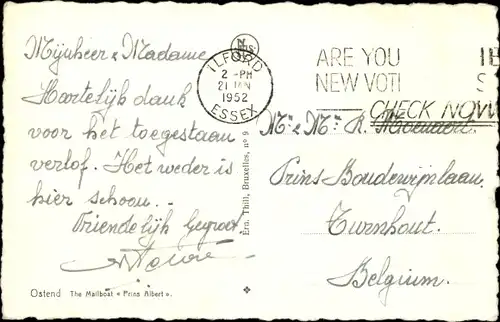 Mijnheer & Madame
Hartelijk dank
voor het toegestaan
verlof. Het weder is
hier schoon.
Vriendelijk Gegroet.
Ostend The Mailboat « Prins Albert ».
Ern. Thill, Bruxelles, n° 9
ILFORD
2 - PM
21 JAN
1952
ESSEX
ARE YOU
NEW VOT
CHECK NOW
Mr & Me R.
Prins Boudewijnlaan.
Turnhout.
Belgium.